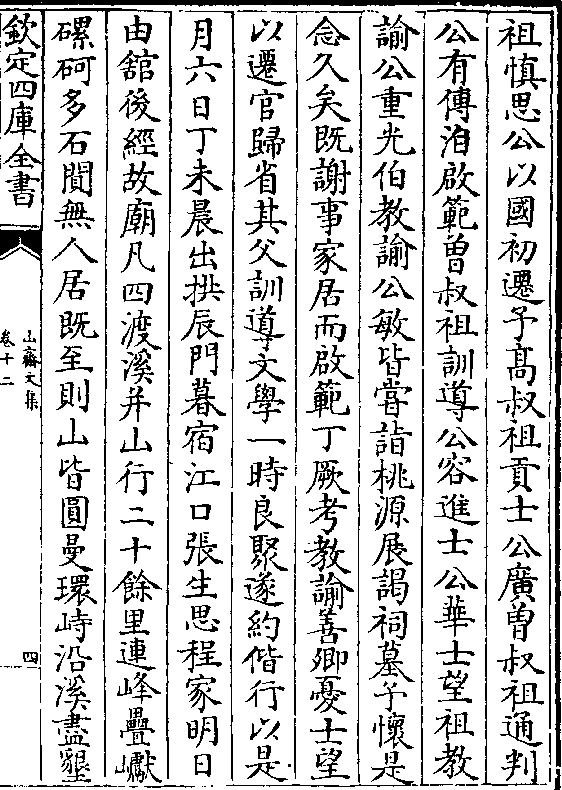 祖慎思公以國初遷予髙叔祖貢士公廣曽叔祖通判
公有傳洎啟範曽叔祖訓導公容進士公華士望祖教
諭公重光伯教諭公敏皆嘗詣桃源展謁祠墓予懷是
念久矣既謝事家居而啟範丁厥考教諭善卿憂士望
以遷官歸省其父訓導文學一時良聚遂約偕行以是
月六日丁未晨出拱辰門暮宿江口張生思程家明日
由舘後經故廟凡四渡溪并山行二十餘里連峰疊巘
磥砢多石間無人居既至則山皆圓曼環峙沿溪盡墾
欽定四庫全書
山齋文集
卷十二
四